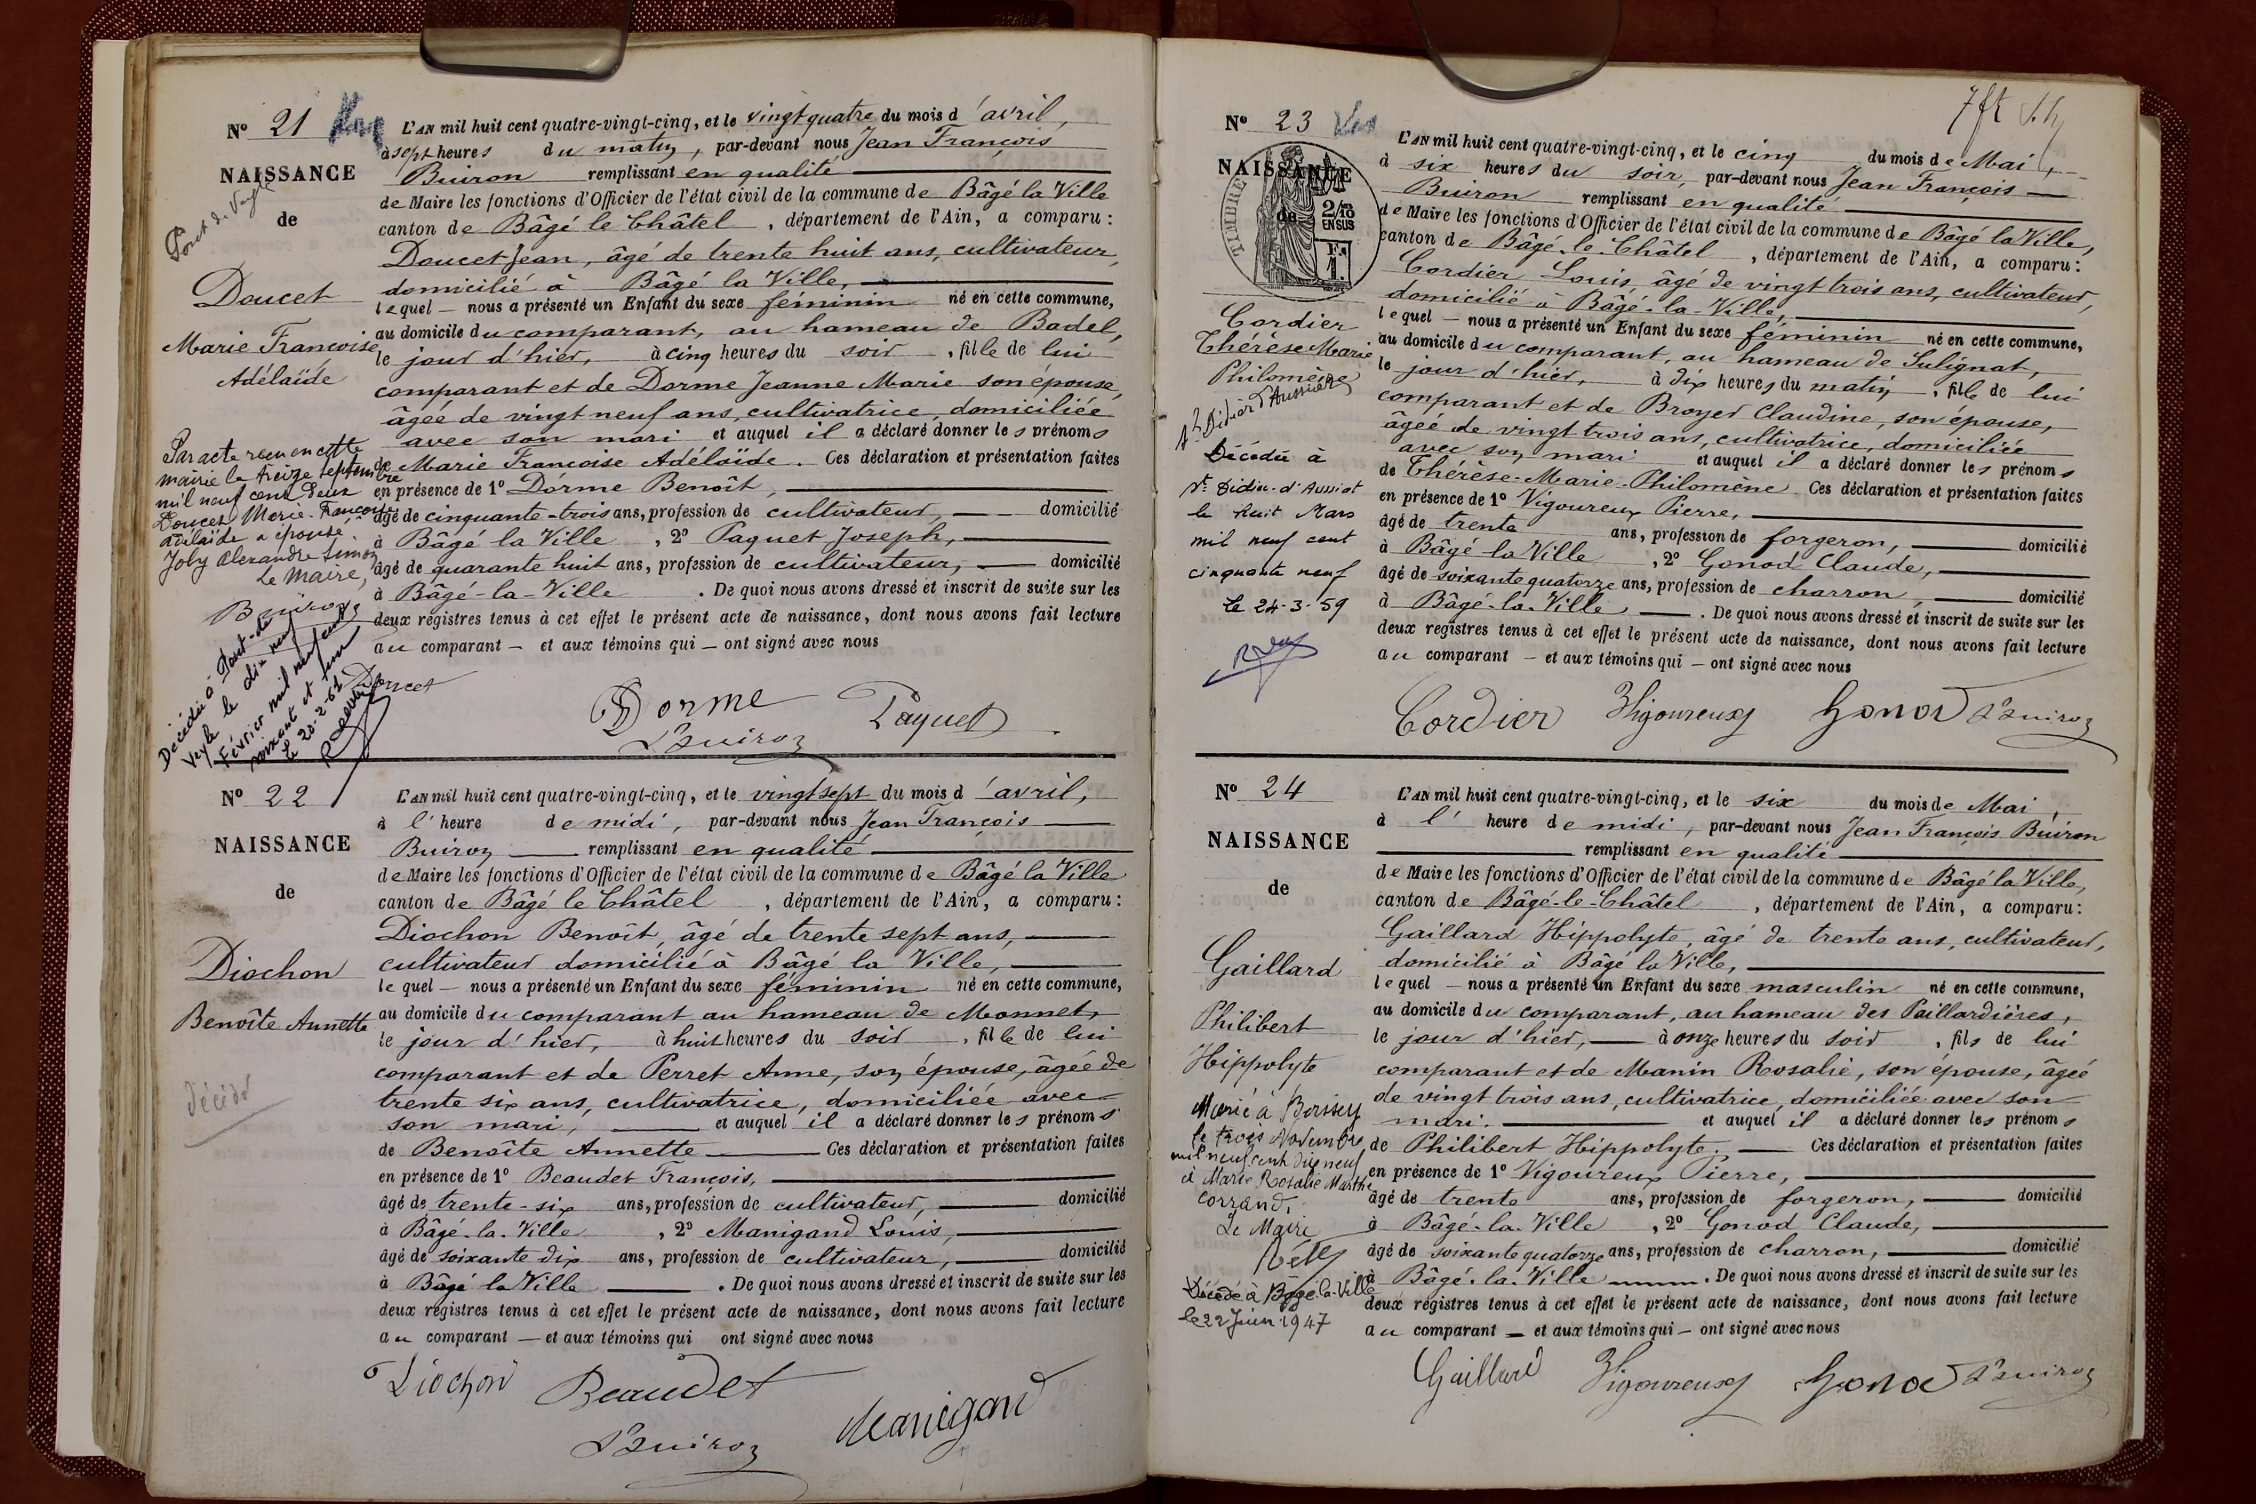 Nº 21
NAISSANCE
de
Pont de Veyle
Doucet
Marie Françoise
Adélaïde
Par acte reçu en cette
mairie le treize septembre
mil neuf cent deux
Doucet Marie-Françoise
Adélaïde a épousé
Joly Alexandre Simon
Le Maire,
Buiron
Décédée à Pont-de-
Veyle le dix neuf
Février mil neuf cent
soixante et un
le 20-2-61
L'AN mil huit cent quatre-vingt-cinq, et le vingt quatre du mois d'avril,
à sept heures du matin, par-devant nous Jean François
Buiron remplissant en qualité
de Maire les fonctions d'Officier de l'état civil de la commune de Bâgé la Ville
canton de Bâgé le Châtel, département de l'Ain, a comparu :
Doucet Jean, âgé de trente huit ans, cultivateur,
domicilié à Bâgé la Ville,
lequel — nous a présenté un Enfant du sexe féminin né en cette commune,
au domicile du comparant, au hameau de Badel,
le jour d'hier, à cinq heures du soir, fille de lui
comparant et de Dorme Jeanne Marie son épouse,
âgée de vingt neuf ans, cultivatrice, domiciliée
avec son mari et auquel il a déclaré donner les prénoms
de Marie Françoise Adélaïde. Ces déclaration et présentation faites
en présence de 1º Dorme Benoît,
âgé de cinquante-trois ans, profession de cultivateur, domicilié
à Bâgé la Ville, 2º Paquet Joseph,
âgé de quarante huit ans, profession de cultivateur, domicilié
à Bâgé-la-Ville. De quoi nous avons dressé et inscrit de suite sur les
deux registres tenus à cet effet le présent acte de naissance, dont nous avons fait lecture
au comparant — et aux témoins qui — ont signé avec nous
Doucet
Dorme Paquet
Buiron
Nº 22
NAISSANCE
de
Diochon
Benoîte Annette
décédé
L'AN mil huit cent quatre-vingt-cinq, et le vingt sept du mois d'avril,
à l'heure de midi, par-devant nous Jean François
Buiron remplissant en qualité
de Maire les fonctions d'Officier de l'état civil de la commune de Bâgé la Ville
canton de Bâgé le Châtel, département de l'Ain, a comparu :
Diochon Benoît, âgé de trente sept ans,
cultivateur domicilié à Bâgé la Ville,
lequel — nous a présenté un Enfant du sexe féminin né en cette commune,
au domicile du comparant au hameau de Monnet,
le jour d'hier, à huit heures du soir, fille de lui
comparant et de Perret Anne, son épouse, âgée de
trente six ans, cultivatrice, domiciliée avec
son mari, et auquel il a déclaré donner les prénoms
de Benoîte Annette Ces déclaration et présentation faites
en présence de 1º Beaudet François,
âgé de trente-six ans, profession de cultivateur, domicilié
à Bâgé-la-Ville, 2º Manigand Louis,
âgé de soixante dix ans, profession de cultivateur, domicilié
à Bâgé la Ville. De quoi nous avons dressé et inscrit de suite sur les
deux registres tenus à cet effet le présent acte de naissance, dont nous avons fait lecture
au comparant — et aux témoins qui ont signé avec nous
Diochon Beaudet
Buiron Manigand
Nº 23
NAISSANCE
de
TIMBRE
2/10
EN SUS
Fr.
1.
Cordier
Thérèse Marie
Philomène
St Didier d'Aussiat
Décédée à
St Didier-d'Aussiat
le huit Mars
mil neuf cent
cinquante neuf
le 24-3-59
L'AN mil huit cent quatre-vingt-cinq, et le cinq du mois de Mai,
à six heures du soir, par-devant nous Jean François
Buiron remplissant en qualité
de Maire les fonctions d'Officier de l'état civil de la commune de Bâgé la Ville,
canton de Bâgé-le-Châtel, département de l'Ain, a comparu :
Cordier Louis, âgé de vingt trois ans, cultivateur,
domicilié à Bâgé-la-Ville,
lequel — nous a présenté un Enfant du sexe féminin né en cette commune,
au domicile du comparant, au hameau de Sulignat,
le jour d'hier, à dix heures du matin, fille de lui
comparant et de Broyer Claudine, son épouse,
âgée de vingt trois ans, cultivatrice, domiciliée
avec son mari et auquel il a déclaré donner les prénoms
de Thérèse-Marie-Philomène. Ces déclaration et présentation faites
en présence de 1º Vigoureux Pierre,
âgé de trente ans, profession de forgeron, domicilié
à Bâgé-la-Ville, 2º Gonod Claude,
âgé de soixante quatorze ans, profession de charron, domicilié
à Bâgé-la-Ville. De quoi nous avons dressé et inscrit de suite sur les
deux registres tenus à cet effet le présent acte de naissance, dont nous avons fait lecture
au comparant — et aux témoins qui — ont signé avec nous
Cordier Vigoureux Gonod Buiron
Nº 24
NAISSANCE
de
Gaillard
Philibert
Hippolyte
Marié à Boissey
le trois Novembre
mil neuf cent dix neuf
à Marie Rosalie Marthe
Corrand.
Le Maire
Décédé à Bâgé-la-Ville
le 22 Juin 1947
L'AN mil huit cent quatre-vingt-cinq, et le six du mois de Mai,
à l'heure de midi, par-devant nous Jean François Buiron
remplissant en qualité
de Maire les fonctions d'Officier de l'état civil de la commune de Bâgé la Ville,
canton de Bâgé-le-Châtel, département de l'Ain, a comparu :
Gaillard Hippolyte, âgé de trente ans, cultivateur,
domicilié à Bâgé la Ville,
lequel — nous a présenté un Enfant du sexe masculin né en cette commune,
au domicile du comparant, au hameau des Paillardières,
le jour d'hier, à onze heures du soir, fils de lui
comparant et de Manin Rosalie, son épouse, âgée
de vingt trois ans, cultivatrice, domiciliée avec son
mari. et auquel il a déclaré donner les prénoms
de Philibert Hippolyte. Ces déclaration et présentation faites
en présence de 1º Vigoureux Pierre,
âgé de trente ans, profession de forgeron, domicilié
à Bâgé-la-Ville, 2º Gonod Claude,
âgé de soixante quatorze ans, profession de charron, domicilié
à Bâgé-la-Ville. De quoi nous avons dressé et inscrit de suite sur les
deux registres tenus à cet effet le présent acte de naissance, dont nous avons fait lecture
au comparant — et aux témoins qui — ont signé avec nous
Gaillard Vigoureux Gonod Buiron